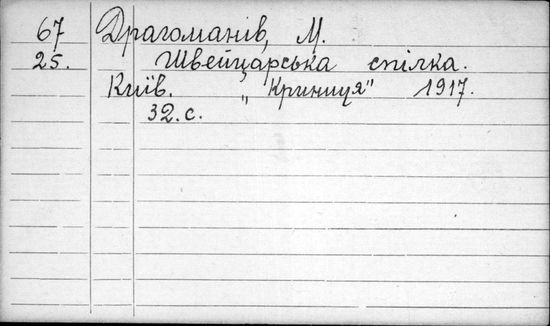 67 Драгоманів, М.
25. Швейцарська спілка.
Київ. „Криниця" 1917.
32.с.